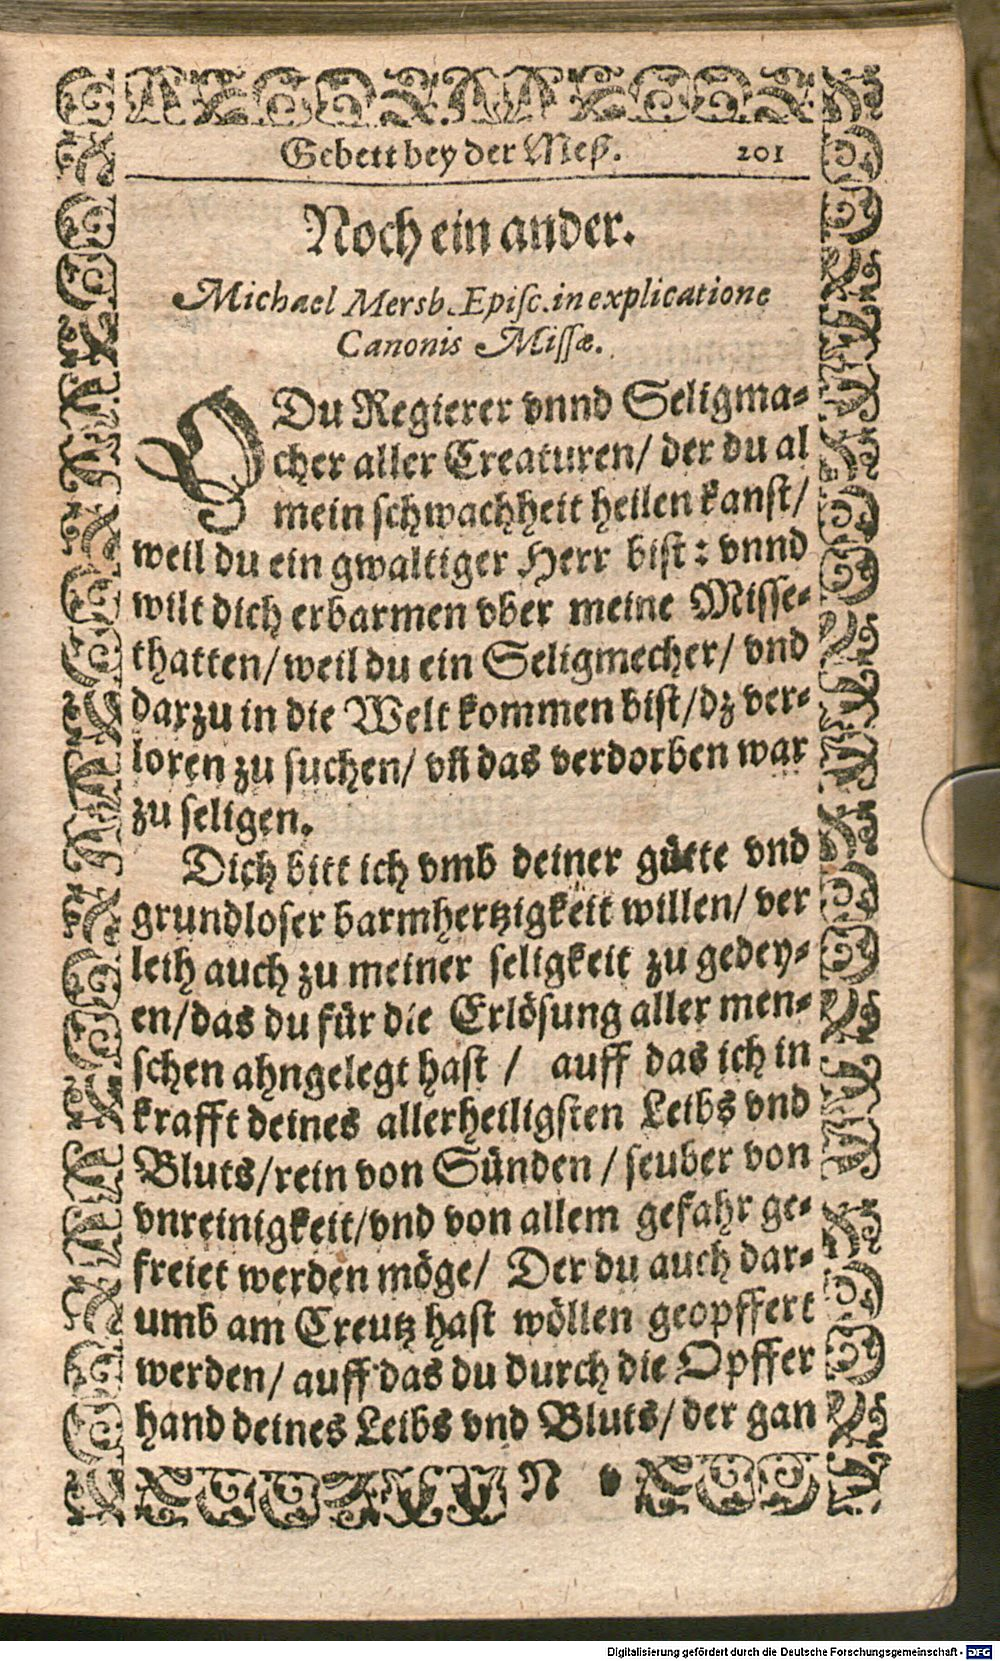 Gebett bey der Meß. 201
Noch ein ander.
Michael Mersb. Episc. in explicatione
Canonis Missæ.
O Du Regierer vnnd Seligma-
cher aller Creaturen/ der du al
mein schwachheit heilen kanst/
weil du ein gwaltiger Herr bist: vnnd
wilt dich erbarmen vber meine Misse-
thatten/ weil du ein Seligmecher/ vnd
darzu in die Welt kommen bist/ dz ver-
loren zu suchen/ vñ das verdorben war
zu seligen.
Dich bitt ich vmb deiner gütte vnd
grundloser barmhertzigkeit willen/ ver
leih auch zu meiner seligkeit zu gedey-
en/ das du für die Erlösung aller men-
schen ahngelegt hast / auff das ich in
krafft deines allerheiligsten Leibs vnd
Bluts/ rein von Sünden / seuber von
vnreinigkeit/ vnd von allem gefahr ge-
freiet werden möge/ Der du auch dar-
umb am Creutz hast wöllen geopffert
werden/ auff das du durch die Opffer
hand deines Leibs vnd Bluts/ der gan
N v
Digitalisierung gefördert durch die Deutsche Forschungsgemeinschaft - DFG